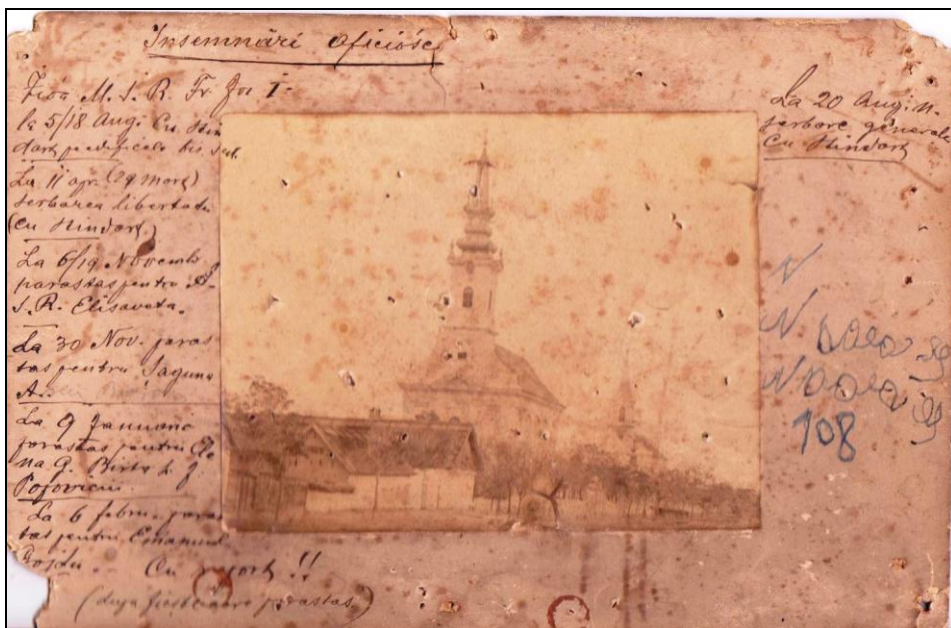 Insemnări oficiósе
Ziua M. S. R. Fr. Jos I-
la 5/18 Aug. Cu
La 11 apr. (29 mart)
serbarea libertatii
(cu stindart)
La 6/19 Novemb.
parastas pentru A-
S. R. Elisaveta.
La 30 Nov. paras
tas pentru Șaguna
A.
La 9 Januarie
parastas pentru Ele
na G. Birta
Popoviciu.
La 6 febru. paras
tas pentru Emanuil
Gojdu - Cu raport !!
(dupa fiestecare parastas)
La 20 Aug. n.
serbare generale
cu stindart
N
N
N
108